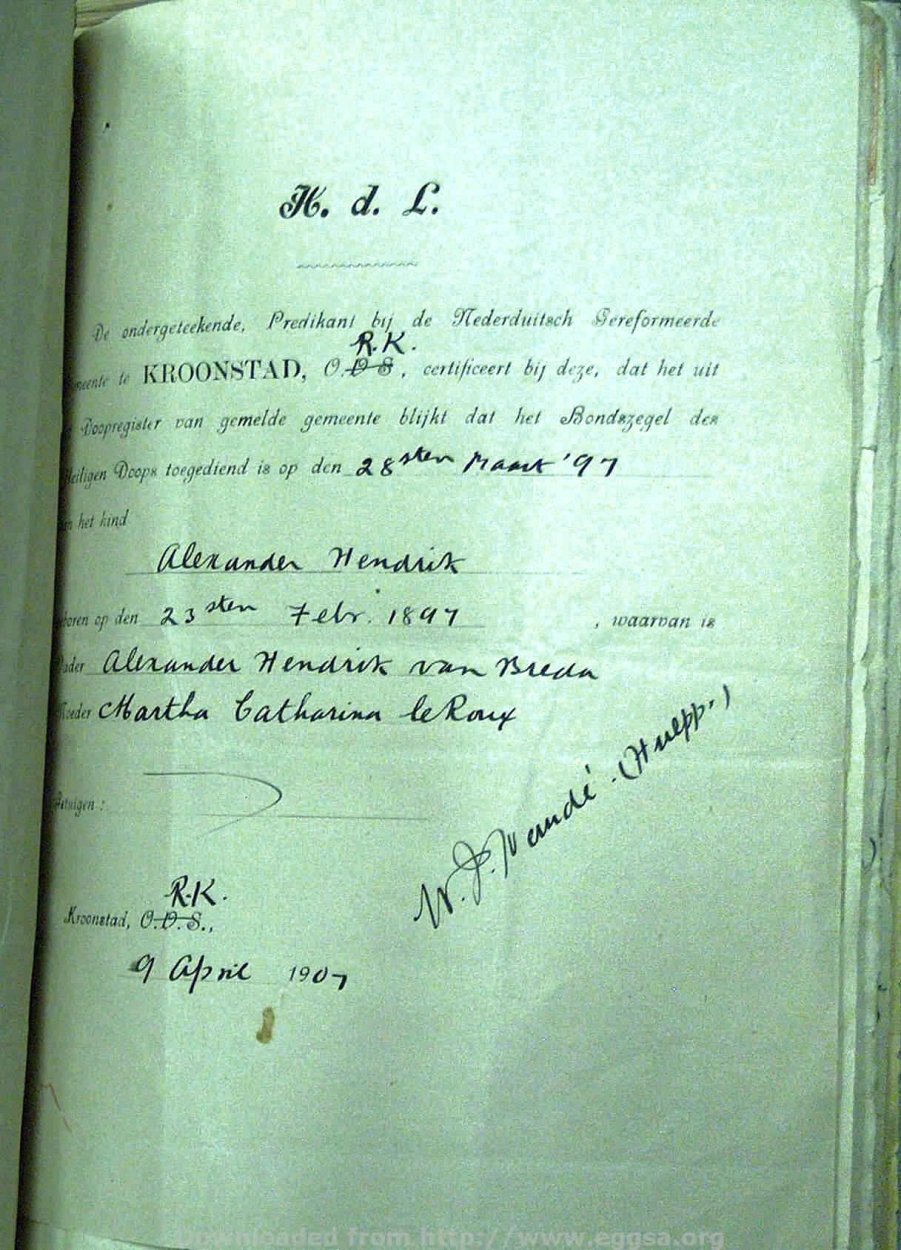 H. d. L.
De ondergeteekende, Predikant bij de Nederduitsch Gereformeerde
R.K.
meente te KROONSTAD, O.D.S, certificeert bij deze, dat het uit
Doopregister van gemelde gemeente blijkt dat het Bondszegel des
Heiligen Doops toegediend is op den 28sten Maart '97
an het kind
Alexander Hendrik
boren op den 23sten Febr. 1897, waarvan is
Vader Alexander Hendrik van Breda
Moeder Martha Catharina le Roux
Getuigen:
W. J.
R.K.
Kroonstad, O.D.S.,
9 April 1907
Downloaded from http://www.eggsa.org